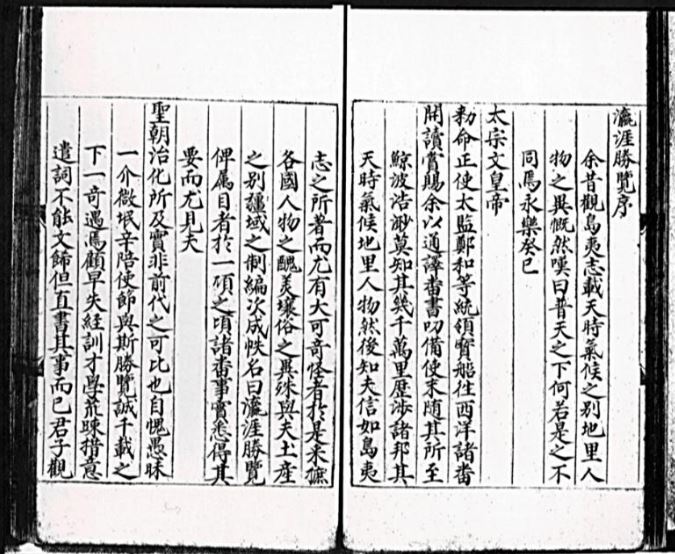 瀛涯勝覽序
余昔觀島夷志載天時氣候之別地里人
物之異慨然嘆曰普天之下何若是之不
同焉永樂癸巳
太宗文皇帝
勑命正使太監鄭和等統領寳船往西洋諸畨
開讀賞賜余以通譯畨書叨備使末随其所至
鯨波浩渺莫知其幾千萬里歴涉諸邦其
天時氣候地里人物然後知夫信如島夷
志之所著而尤有大可竒怪者於是采摭
各國人物之醜美壤俗之異殊與夫土産
之别疆域之制編次成帙名曰瀛涯勝覽
俾属目者於一頃之頃諸畨事實悉得其
要而尤見夫
聖朝治化所及實非前代之可比也自愧愚昧
一介微氓辛陪使節與斯勝覽誠千載之
下一竒遇焉顧早失經訓才學荒踈措意
遣詞不能文飾但直書其事而已君子觀